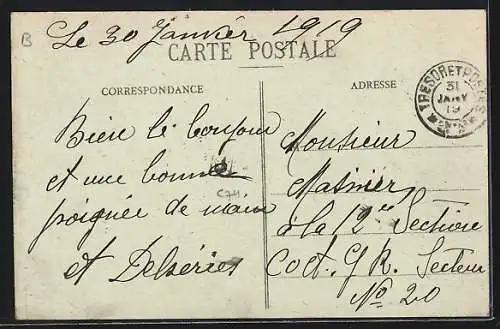 B
Le 30 Janvier 1919
CARTE POSTALE
CORRESPONDANCE
Bien le bonjour
et une bonne
poignée de main
et Delséries
C74.
ADRESSE
TRESOR ET POSTES
31
JANV
19
Monsieur
Masinier,
à la 12e Section
C.o.A. G.R. Secteur
No 20